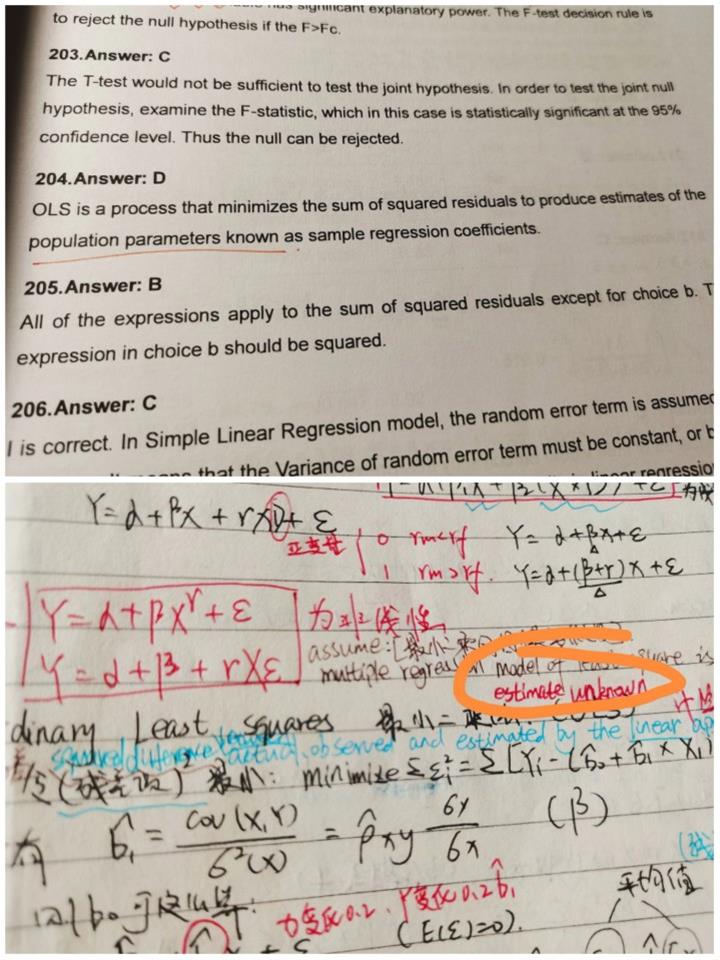 significant explanatory power. The F-test decision rule is
to reject the null hypothesis if the F>Fc.
203.Answer: C
The T-test would not be sufficient to test the joint hypothesis. In order to test the joint null
hypothesis, examine the F-statistic, which in this case is statistically significant at the 95%
confidence level. Thus the null can be rejected.
204.Answer: D
OLS is a process that minimizes the sum of squared residuals to produce estimates of the
population parameters known as sample regression coefficients.
205.Answer: B
All of the expressions apply to the sum of squared residuals except for choice b. T
expression in choice b should be squared.
206.Answer: C
I is correct. In Simple Linear Regression model, the random error term is assumed
that the Variance of random error term must be constant, or b
linear regressio
Y=α+βX+rXD+ε
0 rm<rf Y=α+βX+ε
1 rm>rf. Y=α+(β+r)X+ε
Y=α+βX^r+ε 为非线性
Y=α+β+rXε
assume:
multiple regression model of least square is
estimate unknown
dinary Least squares 最小=
squared difference actual, observed and estimated by the linear
最小: minimize Σε_i²=Σ[Y_i-(b̂₀+b̂₁×X_i)
b̂₁=cov(X,Y)/σ²(X)=ρ̂xy σy/σx (β)
变化0.2, Y变化0.2b̂₁
平均值
(E(ε)=0).